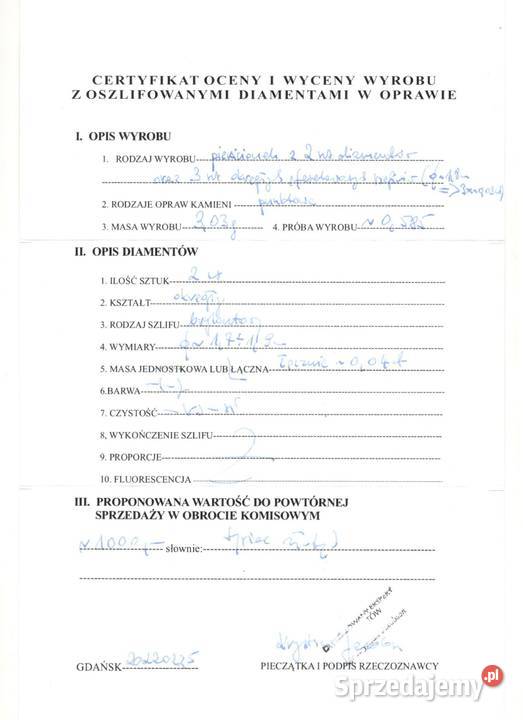 CERTYFIKAT OCENY I WYCENY WYROBU
Z OSZLIFOWANYMI DIAMENTAMI W OPRAWIE
I. OPIS WYROBU
1. RODZAJ WYROBU pierścionek z 2 szt diamentów
oraz 3 szt okrągłych
2. RODZAJE OPRAW KAMIENI
3. MASA WYROBU 3,03g 4. PRÓBA WYROBU ~0,585
II. OPIS DIAMENTÓW
1. ILOŚĆ SZTUK 2 szt
2. KSZTAŁT okrągły
3. RODZAJ SZLIFU brylantowy
4. WYMIARY ϕ~1,7÷1,9
5. MASA JEDNOSTKOWA LUB ŁĄCZNA łącznie ~0,04
6.BARWA
7. CZYSTOŚĆ
8, WYKOŃCZENIE SZLIFU
9. PROPORCJE
10. FLUORESCENCJA
III. PROPONOWANA WARTOŚĆ DO POWTÓRNEJ
SPRZEDAŻY W OBROCIE KOMISOWYM
~1000,- słownie:
GDAŃSK
PIECZĄTKA I PODPIS RZECZOZNAWCY
Sprzedajemy.pl